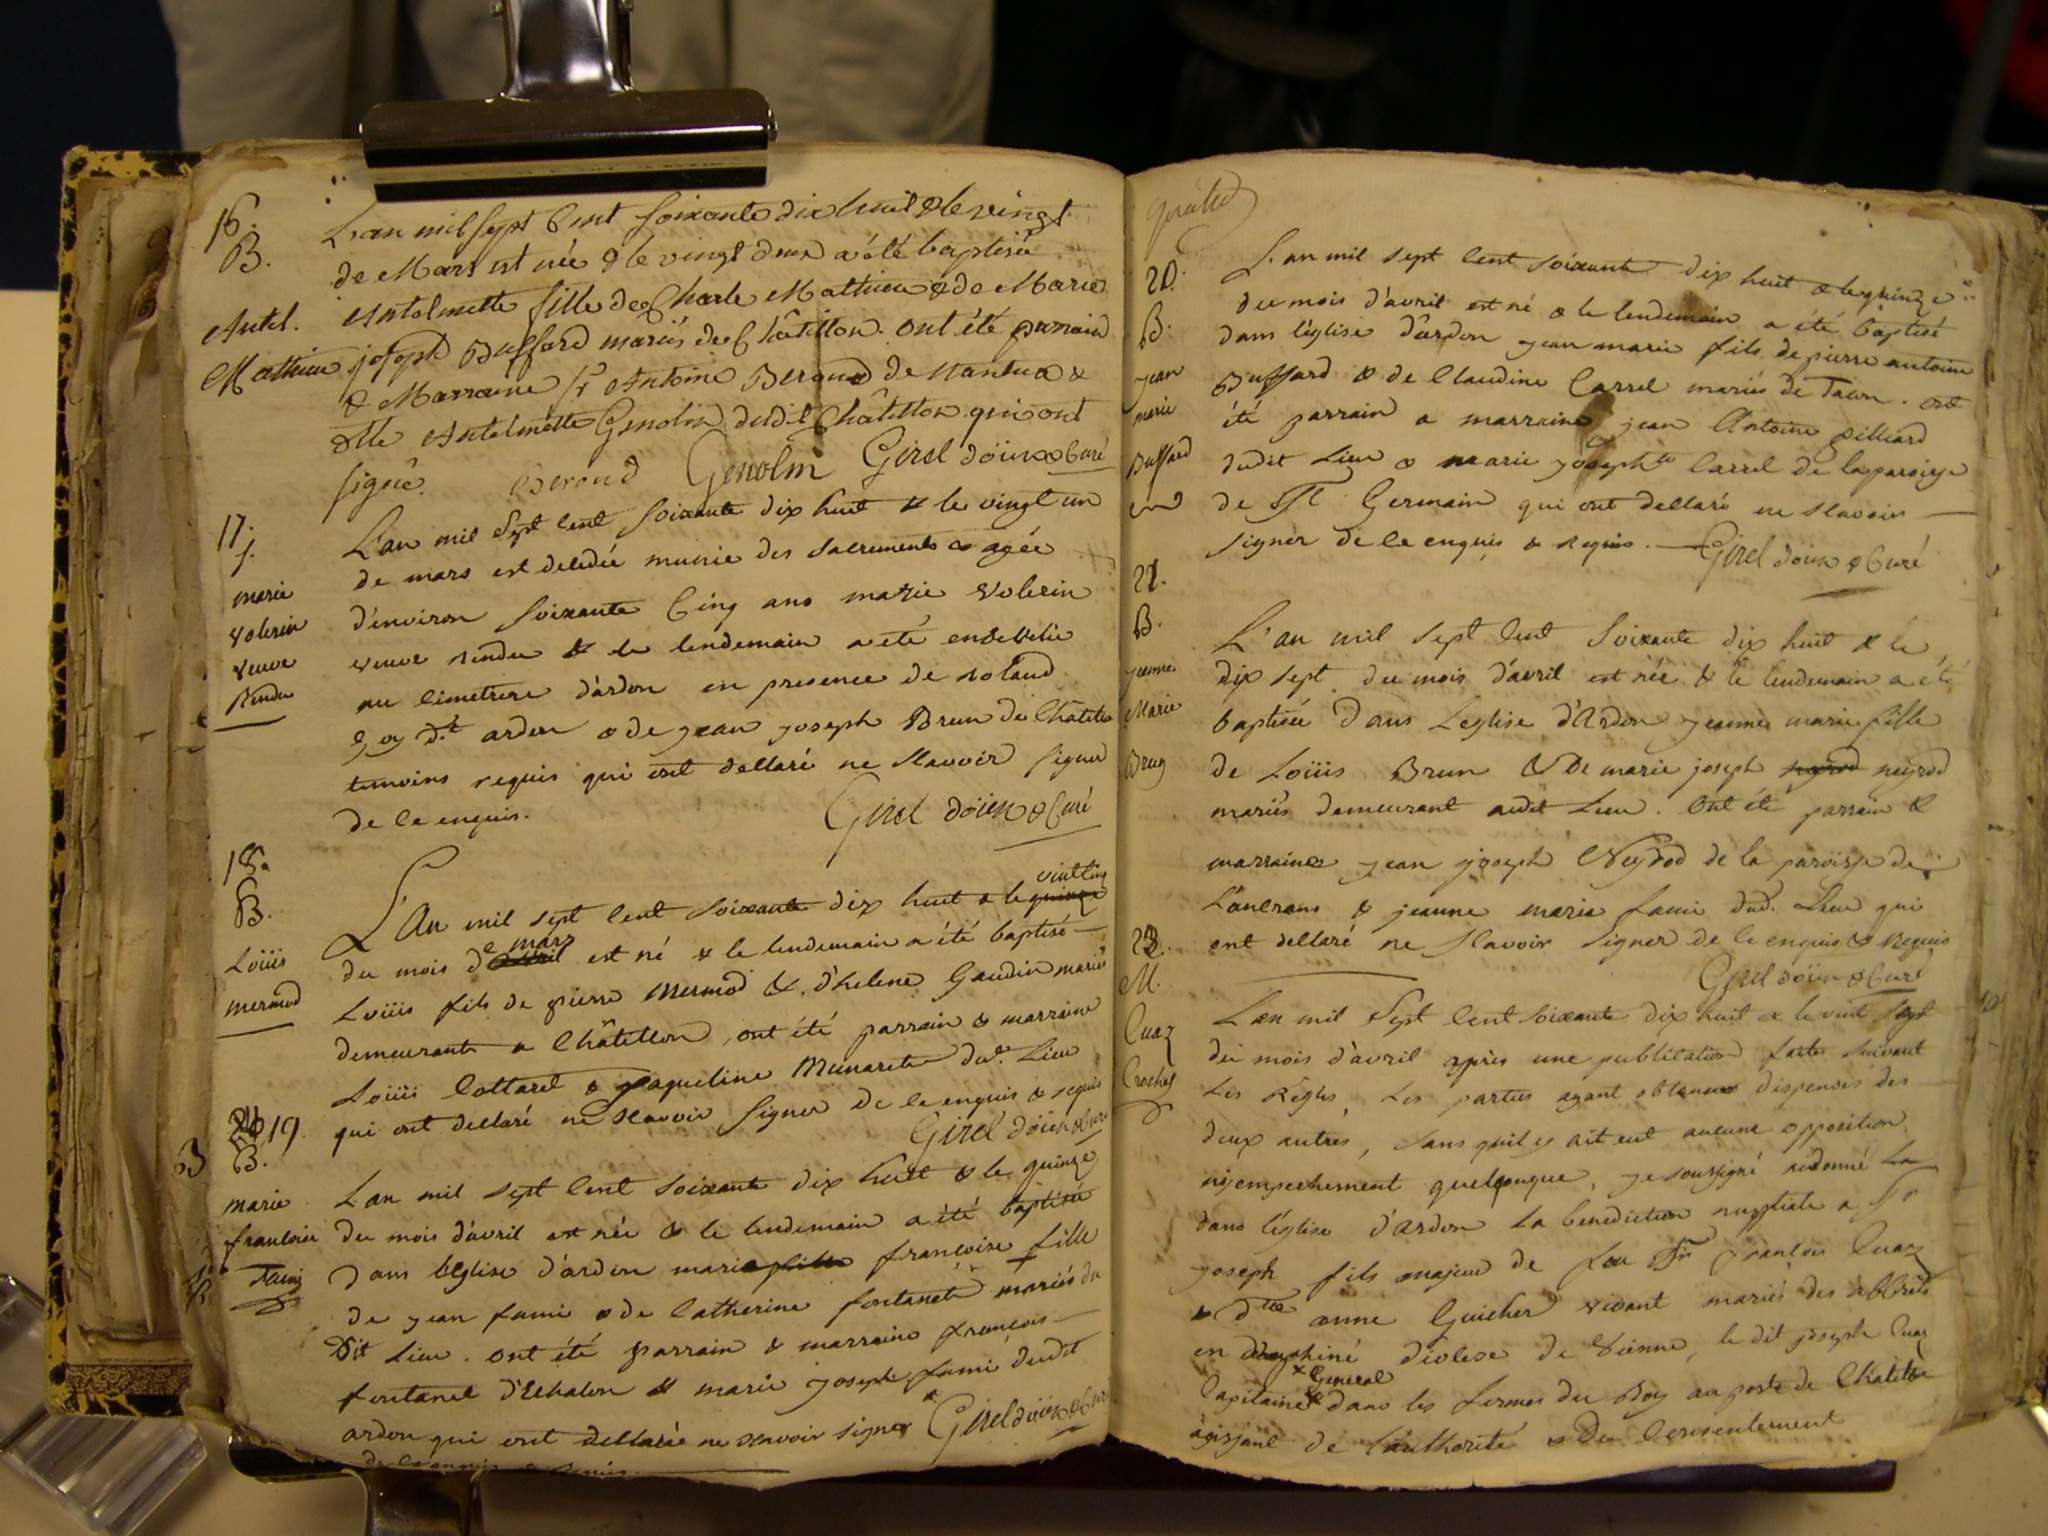 16.
B.
Antel.
Mathieu
L'an mil sept Cent soixante dix huit & le vingt
de Mars est née & le vingt deux a été baptisée
Antelmette fille de Charle Mathieu & de Marie
joseph Buffard mariés de Châtillon. ont été parrain
& Marraine Sr Antoine Beroud de Nantua &
dlle Antelmette Genolin dudit Châtillon qui ont
signé. Beroud Genolin Girel doïen & Curé
17.
S.
marie
volerin
veuve
Rendu
L'an mil Sept Cent soixante dix huit & le vingt un
de mars est decedée munie des sacrements & agée
d'environ soixante Cinq ans marie volerin
veuve rendu & le lendemain a été ensevelie
au Cimetiere d'ardon en presence de roland
dt ardon & de jean joseph Brun de Châtillon
temoins requis qui ont dellaré ne scavoir signer
de ce enquis.
Girel doïen & Curé
18.
B.
Loüis
mermod
L'An mil sept Cent soixante dix huit & le quinze vint cinq
du mois d'avril e mars est né & le lendemain a été baptisé
Loüis fils de pierre Mermod & d'helene Gaudin mariés
demeurants a Châtillon, ont été parrain & marraine
Loüis Cottarel & jaqueline Munaret dud. Lieu
qui ont dellaré ne scavoir signer de ce enquis & requis
Girel doïen & Curé
19
B.
marie
francoise
famy
L'an mil sept Cent soixante dix huit & le quinze
du mois d'avril est née & le lendemain a été baptisée
dans l'eglise d'ardon marie fille francoise fille
de jean fami & de Catherine fontanet mariés du
dit Lieu. ont été parrain & marraine francois
fontanel d'Echalon & marie joseph fami dudit
ardon qui ont dellaré ne scavoir signer Girel doïen & Curé
de ce enquis & requis.
20.
B.
jean
marie
Buffard
L'an mil sept Cent soixante dix huit & le quinze
du mois d'avril est né & le lendemain a été baptisé
dans l'église d'ardon jean marie fils de pierre antoine
Buffard & de Claudine Carrel mariés de Tacon. ont
été parrain & marraine jean Antoine pilliard
dudit Lieu & marie josephte Carrel de la paroisse
de St Germain qui ont dellaré ne scavoir
signer de ce enquis & requis. Girel doïen & Curé
21.
B.
jeanne
Marie
Brun
L'an mil sept Cent soixante dix huit & le
dix sept du mois d'avril est née & le lendemain a été
baptisée dans L'eglise d'Ardon jeanne marie fille
de Loüis Brun & de marie joseph neyrod neyrod
mariés demeurant audit Lieu. Ont été parrain &
marraine jean joseph Neyrod de la paroisse de
Lancrans & jeanne marie fami dud. Lieu qui
ont dellaré ne scavoir signer de ce enquis & requis
Girel doïen & Curé
22.
M.
Cuaz
Crochet
L'an mil Sept Cent soixante dix huit & le vint sept
du mois d'avril après une publication faite suivant
Les Regles, Les parties ayant obtenues dispenses des
deux autres, sans quil y ait eut aucune opposition
ny empechement quelconque, je soussigné ai donné La
dans l'église d'Ardon La benediction nuptiale a Sr
joseph fils majeur de feu Sr francois Cuaz
& dlle anne Guicher vivant mariés des abbrets
en dauphiné diocese de Vienne, le dit joseph Cuaz
Capitaine General dans les fermes du Roy au poste de Chatillon
agissant de l'authorité & du consentement